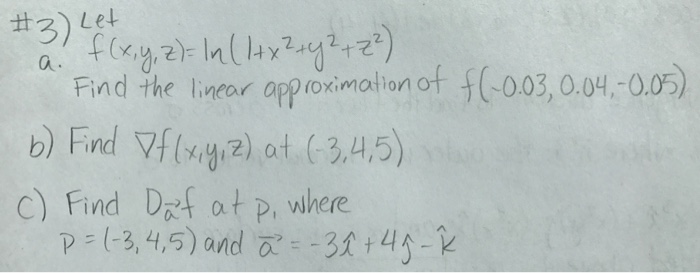 #3) Let
a. f(x,y,z)= ln(1+x²+y²+z²)
Find the linear approximation of f(-0.03, 0.04, -0.05)
b) Find ∇f(x,y,z) at (-3,4,5)
c) Find D_a⃗ f at p, where
p = (-3,4,5) and a⃗ = -3î +4ĵ - k̂